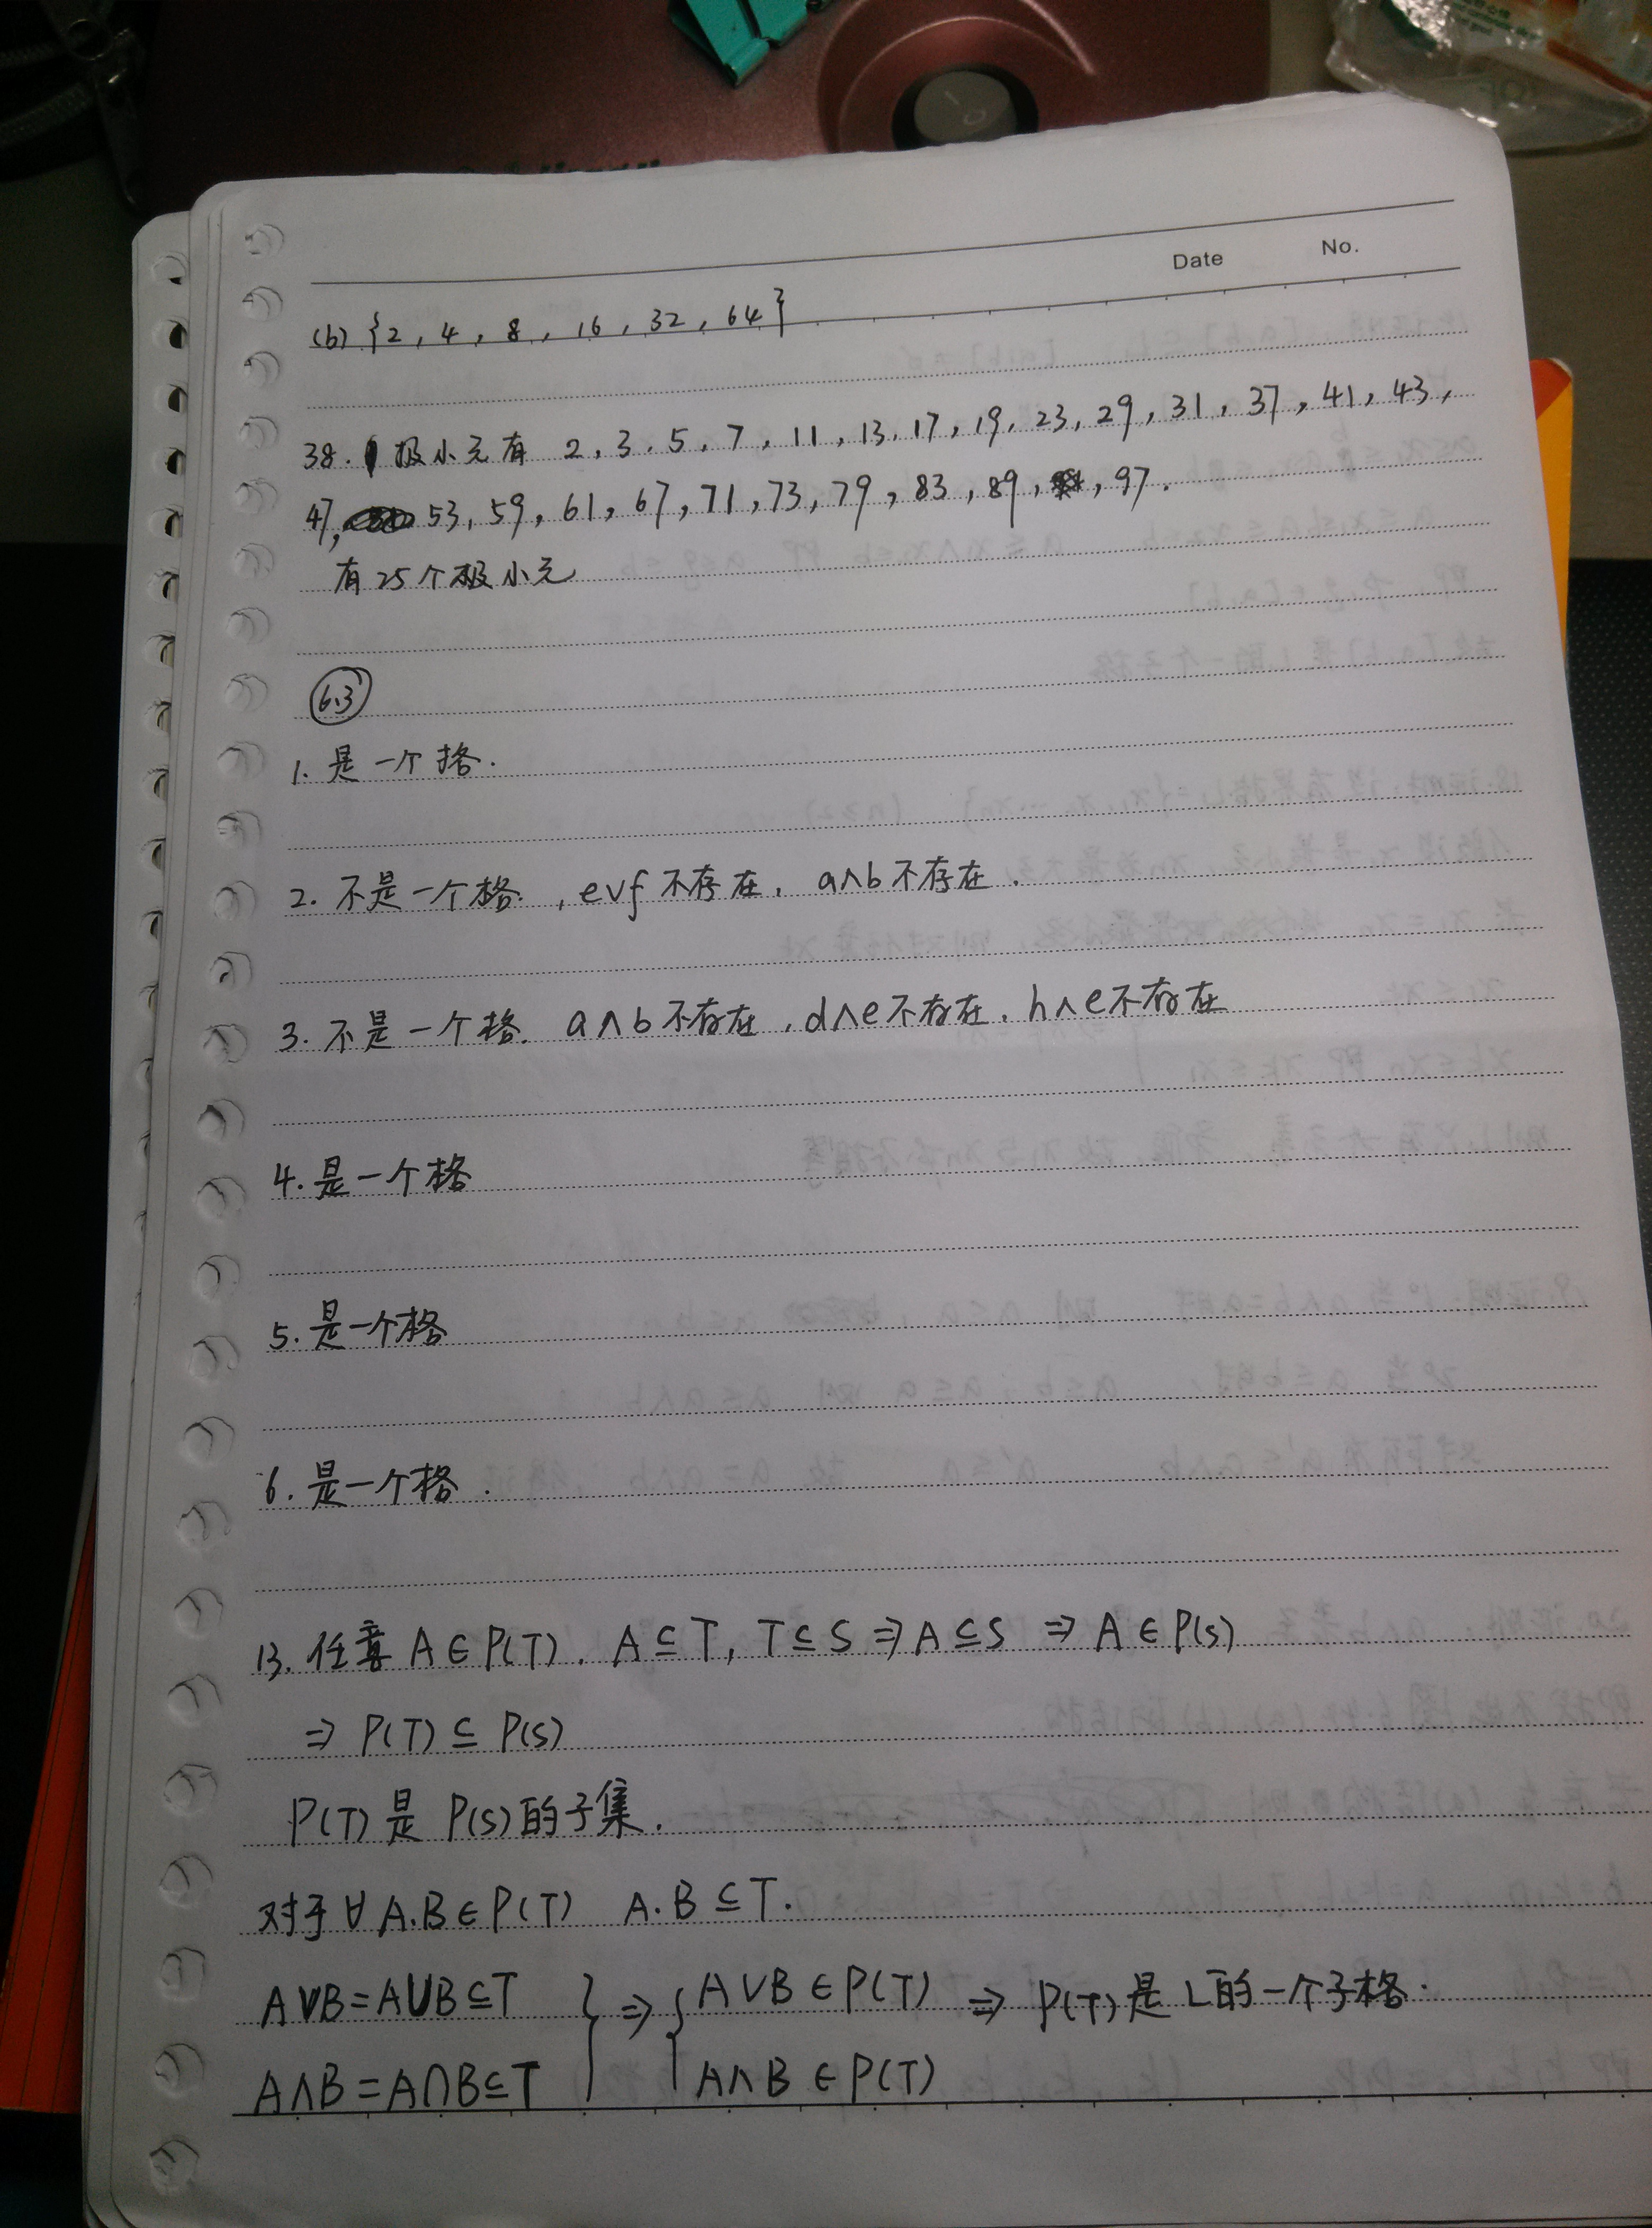 Date No.
(b) {2, 4, 8, 16, 32, 64}
38. 极小元有 2, 3, 5, 7, 11, 13, 17, 19, 23, 29, 31, 37, 41, 43,
47, 53, 59, 61, 67, 71, 73, 79, 83, 89, , 97.
有25个极小元
6.3
1. 是一个格.
2. 不是一个格, e∨f 不存在, a∧b 不存在.
3. 不是一个格. a∧b 不存在, d∧e 不存在, h∧e 不存在
4. 是一个格
5. 是一个格
6. 是一个格.
13. 任意 A∈P(T), A⊆T, T⊆S ⇒ A⊆S ⇒ A∈P(S)
⇒ P(T) ⊆ P(S)
P(T) 是 P(S) 的子集.
对于 ∀ A.B∈P(T) A.B ⊆T.
A∨B=A∪B⊆T } ⇒ { A∨B∈P(T) ⇒ P(T) 是 L 的一个子格.
A∧B=A∩B⊆T A∧B∈P(T)